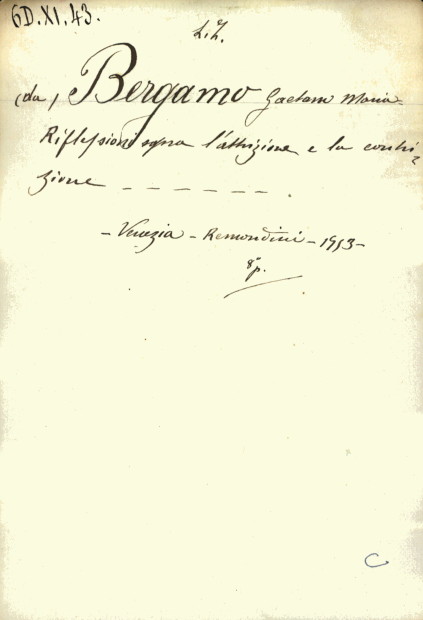 6D.XI.43.
L.Z.
(da) Bergamo Gaetano Maria
Riflessioni sopra l'attrizione e la contri=
zione _ _ _ _ _ _ .
- Venezia - Remondini - 1753 -
8°p.
C